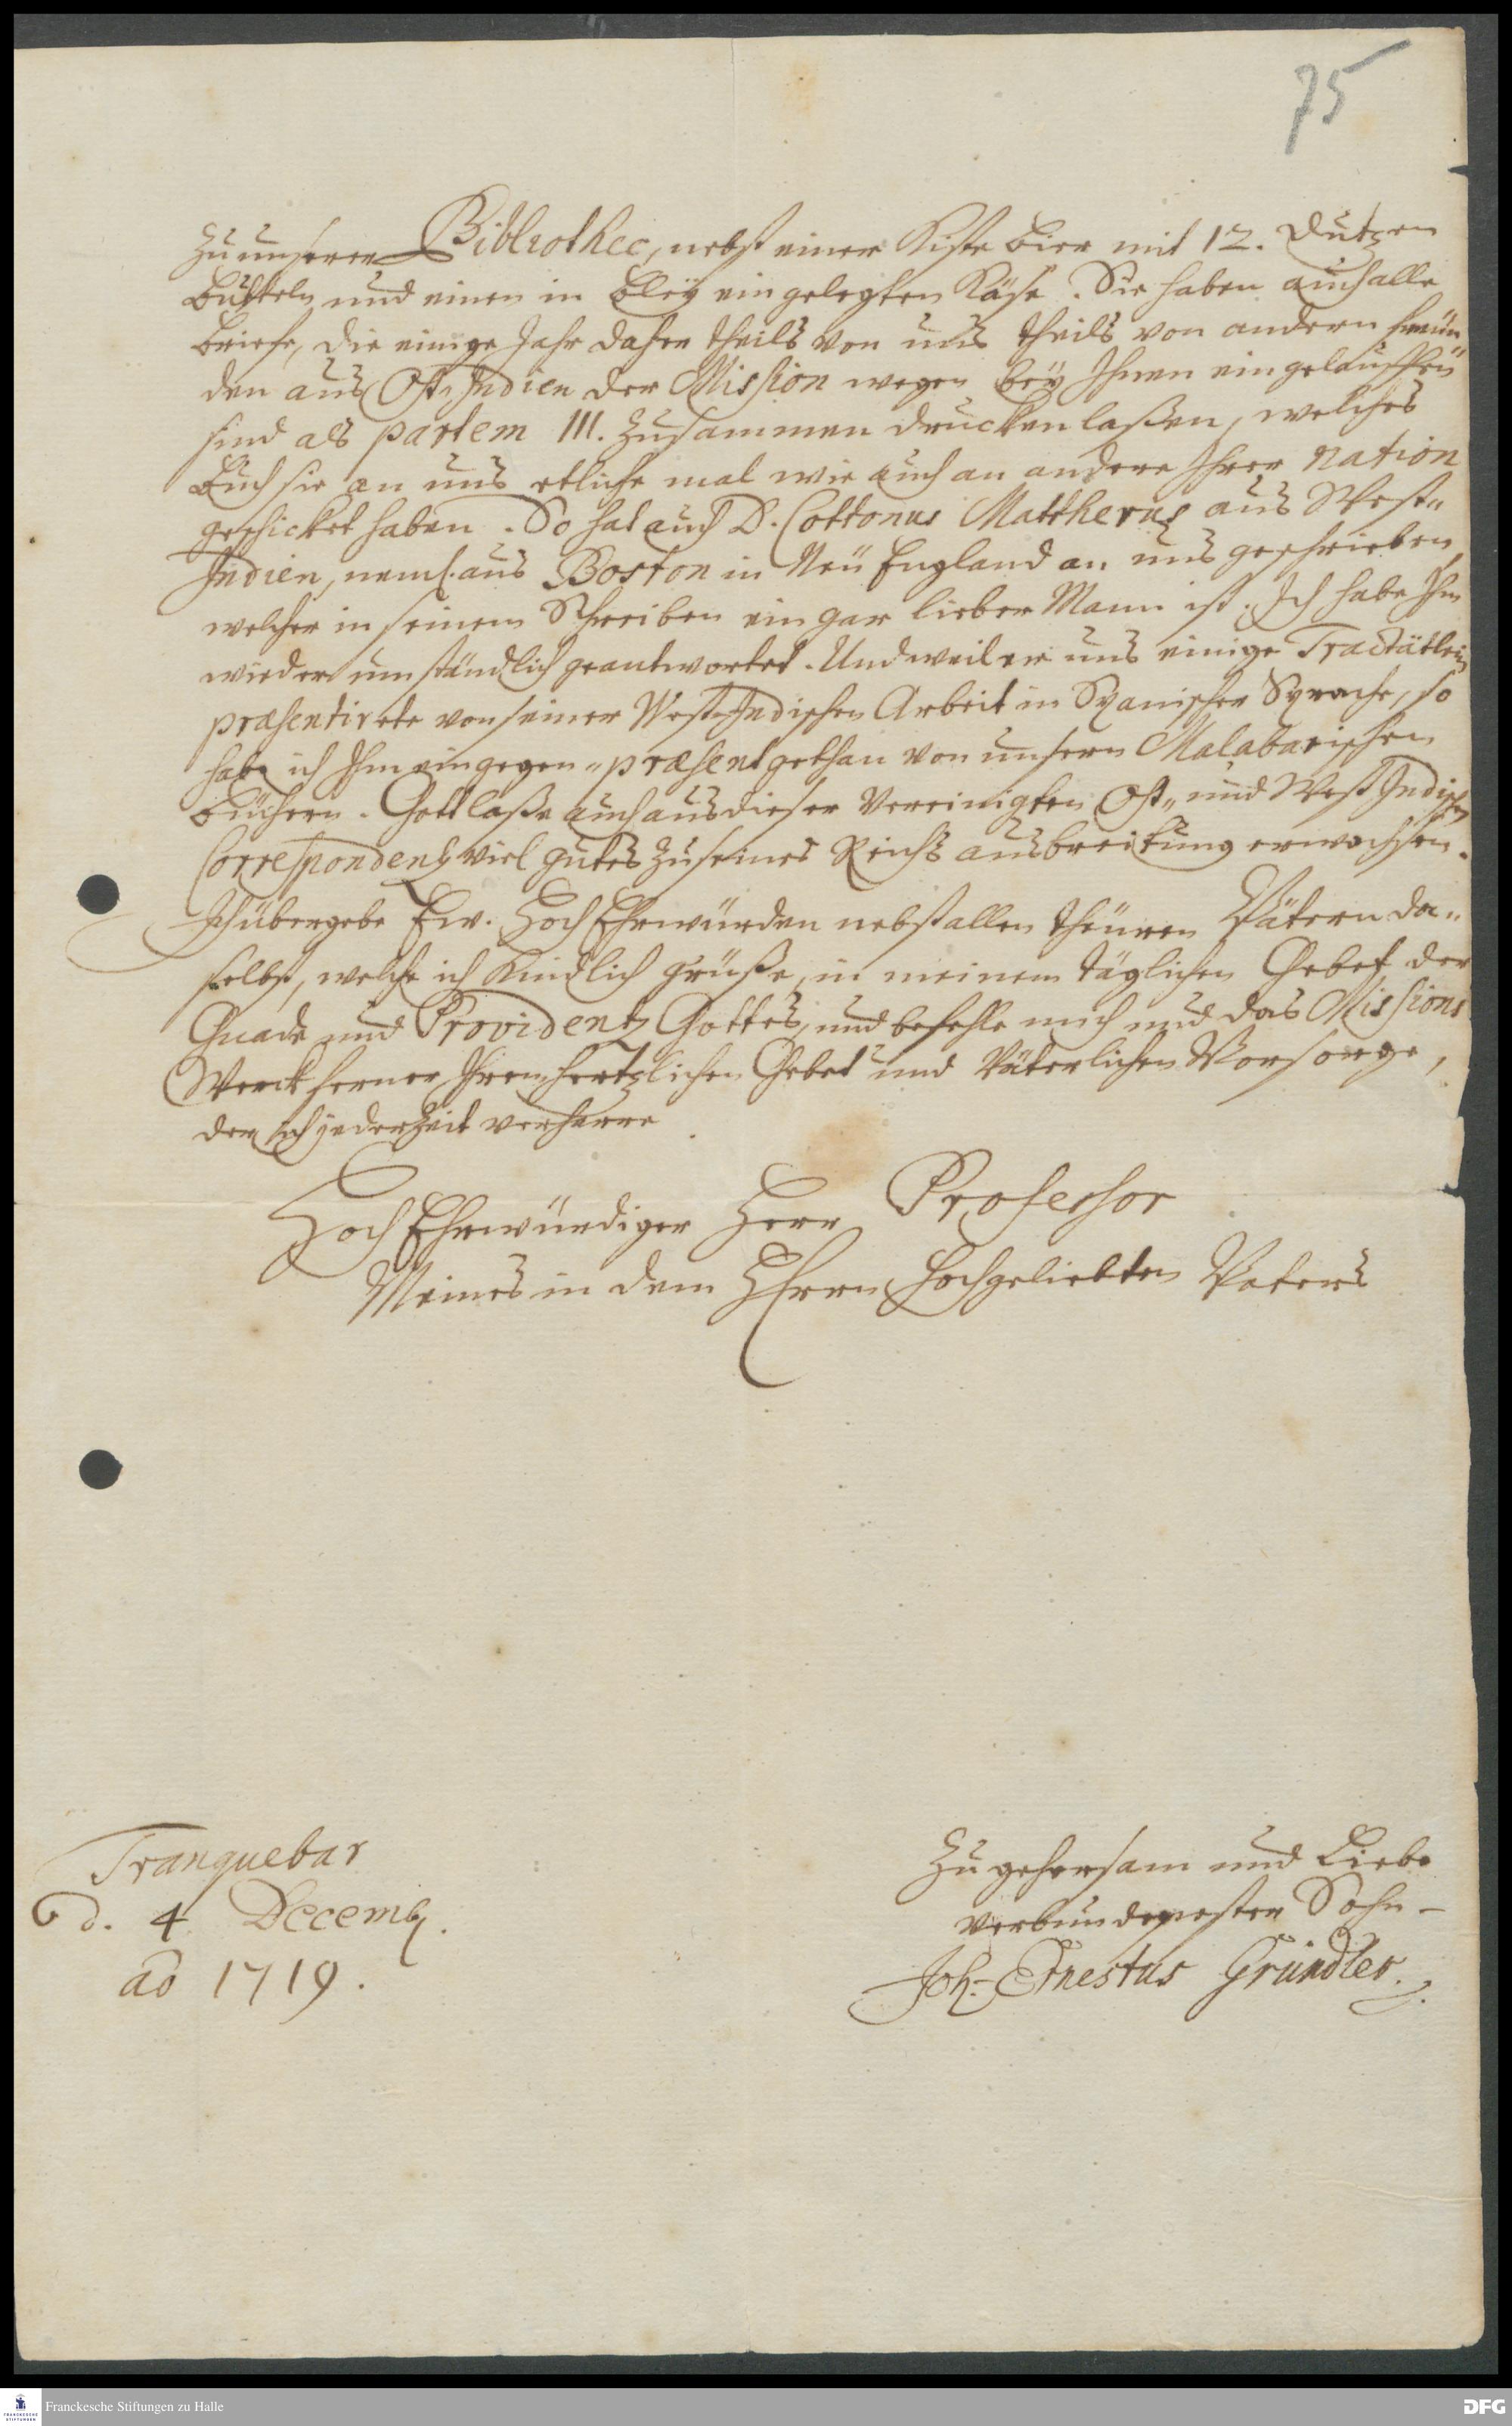 75
zu unserer Bibliothec, nebst einer Kiste Bier mit 12. Dutzen
Butteln und einen in Bley eingelegten Käse. Sie haben auch alle
Briefe, die einige Jahr daher theils von uns theils von andern freün
den aus Ost-Indien der Mission wegen bey Ihnen eingelauffen
sind als partem III. zusammen drucken laßen, welches
Buch sie an uns etliche mal wie auch an andere Ihrer Nation
geschicket haben. So hat auch D. Cottonus Mattherus aus West„
Indien, neml. aus Boston in Neü England an uns geschrieben,
welcher in seinem Schreiben ein gar lieber Mann ist. Ich habe Ihm
wieder umständlich geantwortet. Und weil er uns einige Tractätlein
præsentirete von seiner West-Indischen Arbeit in Spanischer Sprache, so
habe ich Ihm ein gegen„præsent gethan von unsern Malabarischen
Büchern. Gott laße auch aus dieser Vereinigten Ost„ und West Indischen
Correspondentz viel gutes zu seines Reichs ausbreitung erwachsen.
Ich übergebe Ew. HochEhrwürden nebst allen theüren Vätern da„
selbst, welche ich Kindlich grüße, in meinem täglichen Gebet der
Gnade und Providentz Gottes, und befehle mich und das Missions
Werck ferner Ihrem hertzlichen Gebet und Väterlichen Vorsorge,
der ich jederzeit verharre
HochEhrwürdiger Herr Professor
Meines in dem HErrn Hochgeliebten Vaters
Tranquebar
d. 4 Decemb.
ao 1719.
Zu gehorsam und Liebe
verbundenester Sohn
Joh. Ernestus Gründler.
Franckesche Stiftungen zu Halle
DFG